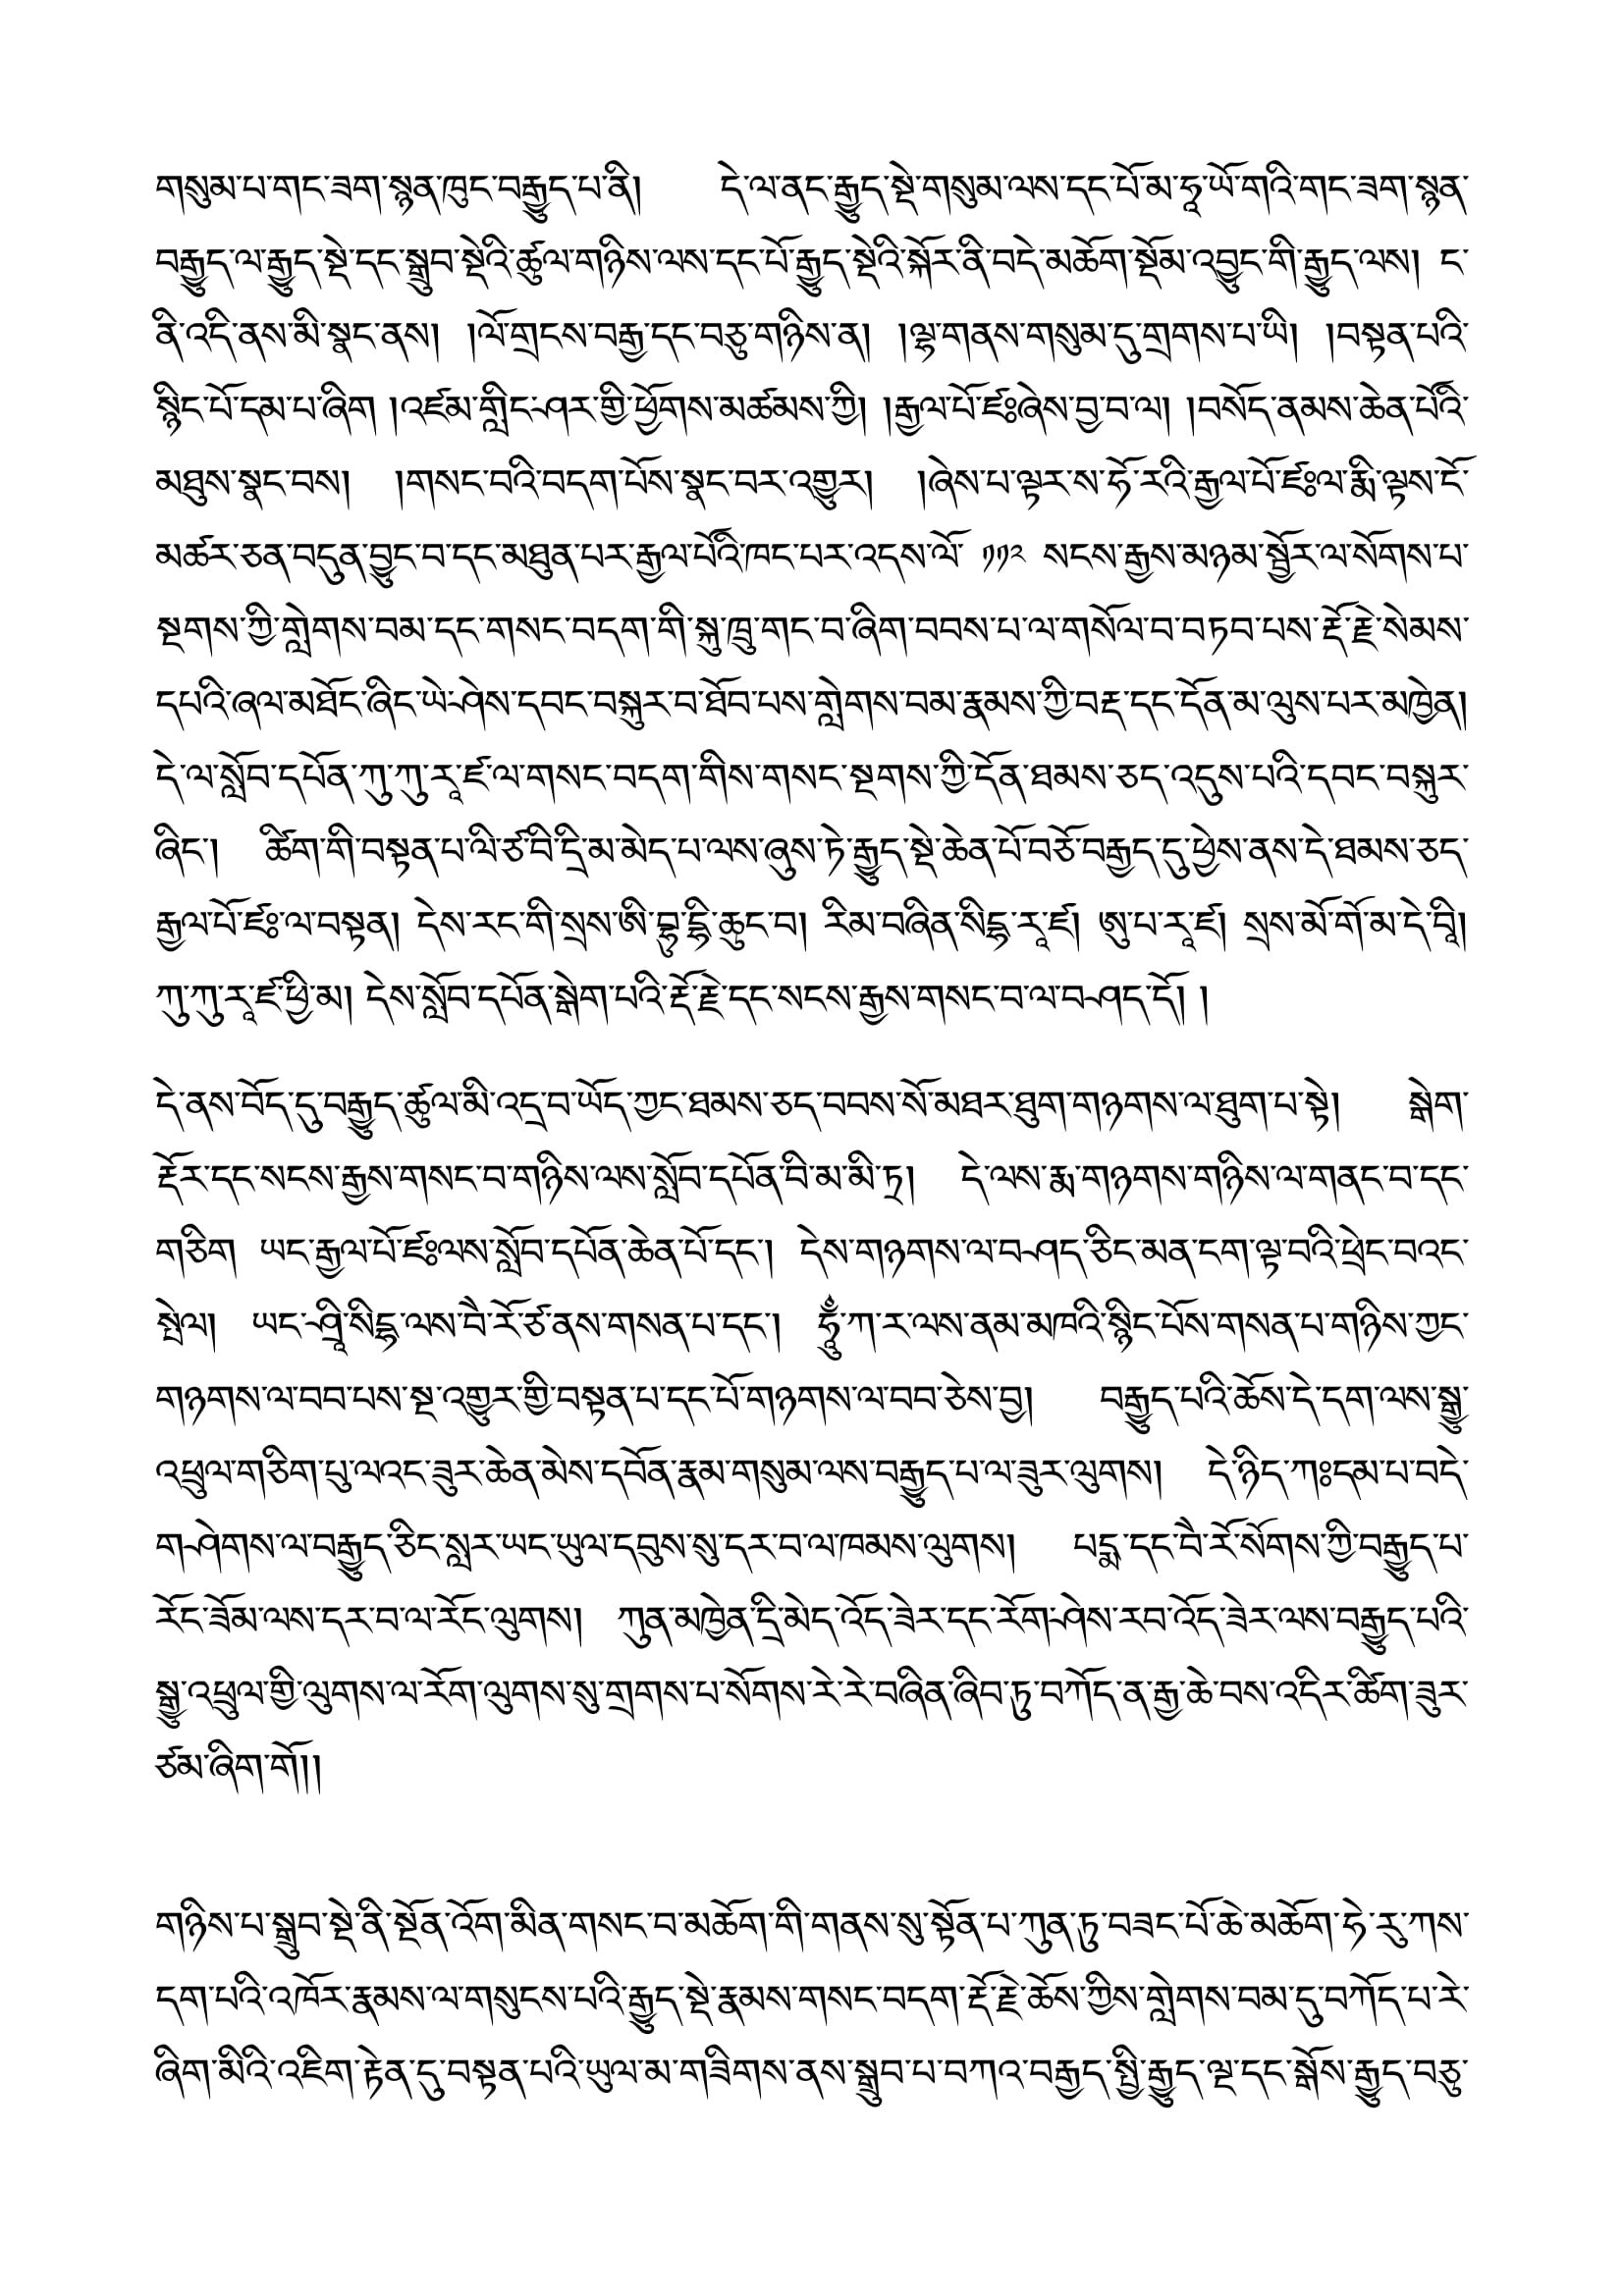 གསུམ་པ་གང་ཟག་སྙན་ཁུང་བརྒྱུད་པ་ནི། དེ་ལ་ནང་རྒྱུད་སྡེ་གསུམ་ལས་དང་པོ་མ་ཧཱ་ཡོ་གའི་གང་ཟག་སྙན་
བརྒྱུད་ལ་རྒྱུད་སྡེ་དང་སྒྲུབ་སྡེའི་ཚུལ་གཉིས་ལས་དང་པོ་རྒྱུད་སྡེའི་སྐོར་ནི་བདེ་མཆོག་སྡོམ་འབྱུང་གི་རྒྱུད་ལས། ང་
ནི་འདི་ནས་མི་སྣང་ནས། །ལོ་གྲངས་བརྒྱ་དང་བཅུ་གཉིས་ན། །ལྷ་གནས་གསུམ་དུ་གྲགས་པ་ཡི། །བསྟན་པའི་
སྙིང་པོ་དམ་པ་ཞིག །འཛམ་གླིང་ཤར་གྱི་ཕྱོགས་མཚམས་ཀྱི། །རྒྱལ་པོ་ཛཿཞེས་བྱ་བ་ལ། །བསོད་ནམས་ཆེན་པོའི་
མཐུས་སྣང་བས། །གསང་བའི་བདག་པོས་སྣང་བར་འགྱུར། །ཞེས་པ་ལྟར་ས་ཧོ་རའི་རྒྱལ་པོ་ཛཿལ་རྨི་ལྟས་ངོ་
མཚར་ཅན་བདུན་བྱུང་བ་དང་མཐུན་པར་རྒྱལ་པོའི་ཁང་པར་འདས་ལོ་ ༡༡༢ སངས་རྒྱས་མཉམ་སྦྱོར་ལ་སོགས་པ་
སྔགས་ཀྱི་གླེགས་བམ་དང་གསང་བདག་གི་སྐུ་ཁྲུ་གང་བ་ཞིག་བབས་པ་ལ་གསོལ་བ་བཏབ་པས་རྡོ་རྗེ་སེམས་
དཔའི་ཞལ་མཐོང་ཞིང་ཡེ་ཤེས་དབང་བསྐུར་བ་ཐོབ་པས་གླེགས་བམ་རྣམས་ཀྱི་བརྡ་དང་དོན་མ་ལུས་པར་མཁྱེན།
དེ་ལ་སློབ་དཔོན་ཀུ་ཀུ་རཱ་ཛ་ལ་གསང་བདག་གིས་གསང་སྔགས་ཀྱི་དོན་ཐམས་ཅད་འདུས་པའི་དབང་བསྐུར་
ཞིང་། ཚིག་གི་བསྟན་པ་ལི་ཙ་བི་དྲི་མ་མེད་པ་ལས་ཞུས་ཏེ་རྒྱུད་སྡེ་ཆེན་པོ་བཅོ་བརྒྱད་དུ་ཕྱེས་ནས་དེ་ཐམས་ཅད་
རྒྱལ་པོ་ཛཿ་ལ་བསྟན། དེས་རང་གི་སྲས་ཨི་བྷུ་ཏྲི་ཆུང་བ། རིམ་བཞིན་སིངྷ་རཱ་ཛ། ཨུ་པ་རཱ་ཛ། སྲས་མོ་གོ་མ་དེ་བཱི།
ཀུ་ཀུ་རཱ་ཛ་ཕྱི་མ། དེས་སློབ་དཔོན་སྒེག་པའི་རྡོ་རྗེ་དང་སངས་རྒྱས་གསང་བ་ལ་བཤད་དོ། །
དེ་ནས་བོད་དུ་བརྒྱུད་ཚུལ་མི་འདྲ་བ་ཡོད་ཀྱང་ཐམས་ཅད་བབས་སོ་མཐར་ཐུག་གཉགས་ལ་ཐུག་པ་སྟེ། སྒེག་
རྡོར་དང་སངས་རྒྱས་གསང་བ་གཉིས་ལས་སློབ་དཔོན་བི་མ་མི་ཏྲ། དེ་ལས་རྨ་གཉགས་གཉིས་ལ་གནང་བ་དང་
གཅིག ཡང་རྒྱལ་པོ་ཛཿལས་སློབ་དཔོན་ཆེན་པོ་དང་། དེས་གཉགས་ལ་བཤད་ཅིང་མན་ངག་ལྟ་བའི་ཕྲེང་བའང་
སྤེལ། ཡང་ཤྲཱི་སིངྷ་ལས་བཻ་རོ་ཙ་ནས་གསན་པ་དང་། ཧཱུྃ་ཀ་ར་ལས་ནམ་མཁའི་སྙིང་པོས་གསན་པ་གཉིས་ཀྱང་
གཉགས་ལ་བབ་པས་སྔ་འགྱུར་གྱི་བསྟན་པ་དང་པོ་གཉགས་ལ་བབ་ཅེས་བྱ། བརྒྱུད་པའི་ཆོས་དེ་དག་ལས་སྒྱུ་
འཕྲུལ་གཅིག་པུ་ལའང་ཟུར་ཆེན་མེས་དབོན་རྣམ་གསུམ་ལས་བརྒྱུད་པ་ལ་ཟུར་ལུགས། དེ་ཉིད་ཀཿདམ་པ་བདེ་
གཤེགས་ལ་བརྒྱུད་ཅིང་སླར་ཡང་ཡུལ་དབུས་སུ་དར་བ་ལ་ཁམས་ལུགས། པདྨ་དང་བཻ་རོ་སོགས་ཀྱི་བརྒྱུད་པ་
རོང་ཟོམ་ལས་དར་བ་ལ་རོང་ལུགས། ཀུན་མཁྱེན་དྲི་མེད་འོད་ཟེར་དང་རོག་ཤེས་རབ་འོད་ཟེར་ལས་བརྒྱུད་པའི་
སྒྱུ་འཕྲུལ་གྱི་ལུགས་ལ་རོག་ལུགས་སུ་གྲགས་པ་སོགས་རེ་རེ་བཞིན་ཞིབ་ཏུ་བཀོད་ན་རྒྱ་ཆེ་བས་འདིར་ཚིག་ཟུར་
ཙམ་ཞིག་གོ།།
གཉིས་པ་སྒྲུབ་སྡེ་ནི་སྔོན་འོག་མིན་གསང་བ་མཆོག་གི་གནས་སུ་སྟོན་པ་ཀུན་ཏུ་བཟང་པོ་ཆེ་མཆོག་ཧེ་རུ་ཀས་
དག་པའི་འཁོར་རྣམས་ལ་གསུངས་པའི་རྒྱུད་སྡེ་རྣམས་གསང་བདག་རྡོ་རྗེ་ཆོས་ཀྱིས་གླེགས་བམ་དུ་བཀོད་པ་རེ་
ཞིག་མིའི་འཇིག་རྟེན་དུ་བསྟན་པའི་ཡུལ་མ་གཟིགས་ནས་སྒྲུབ་པ་བཀའ་བརྒྱད་སྤྱི་རྒྱུད་ལྔ་དང་སྒོས་རྒྱུད་བཅུ་